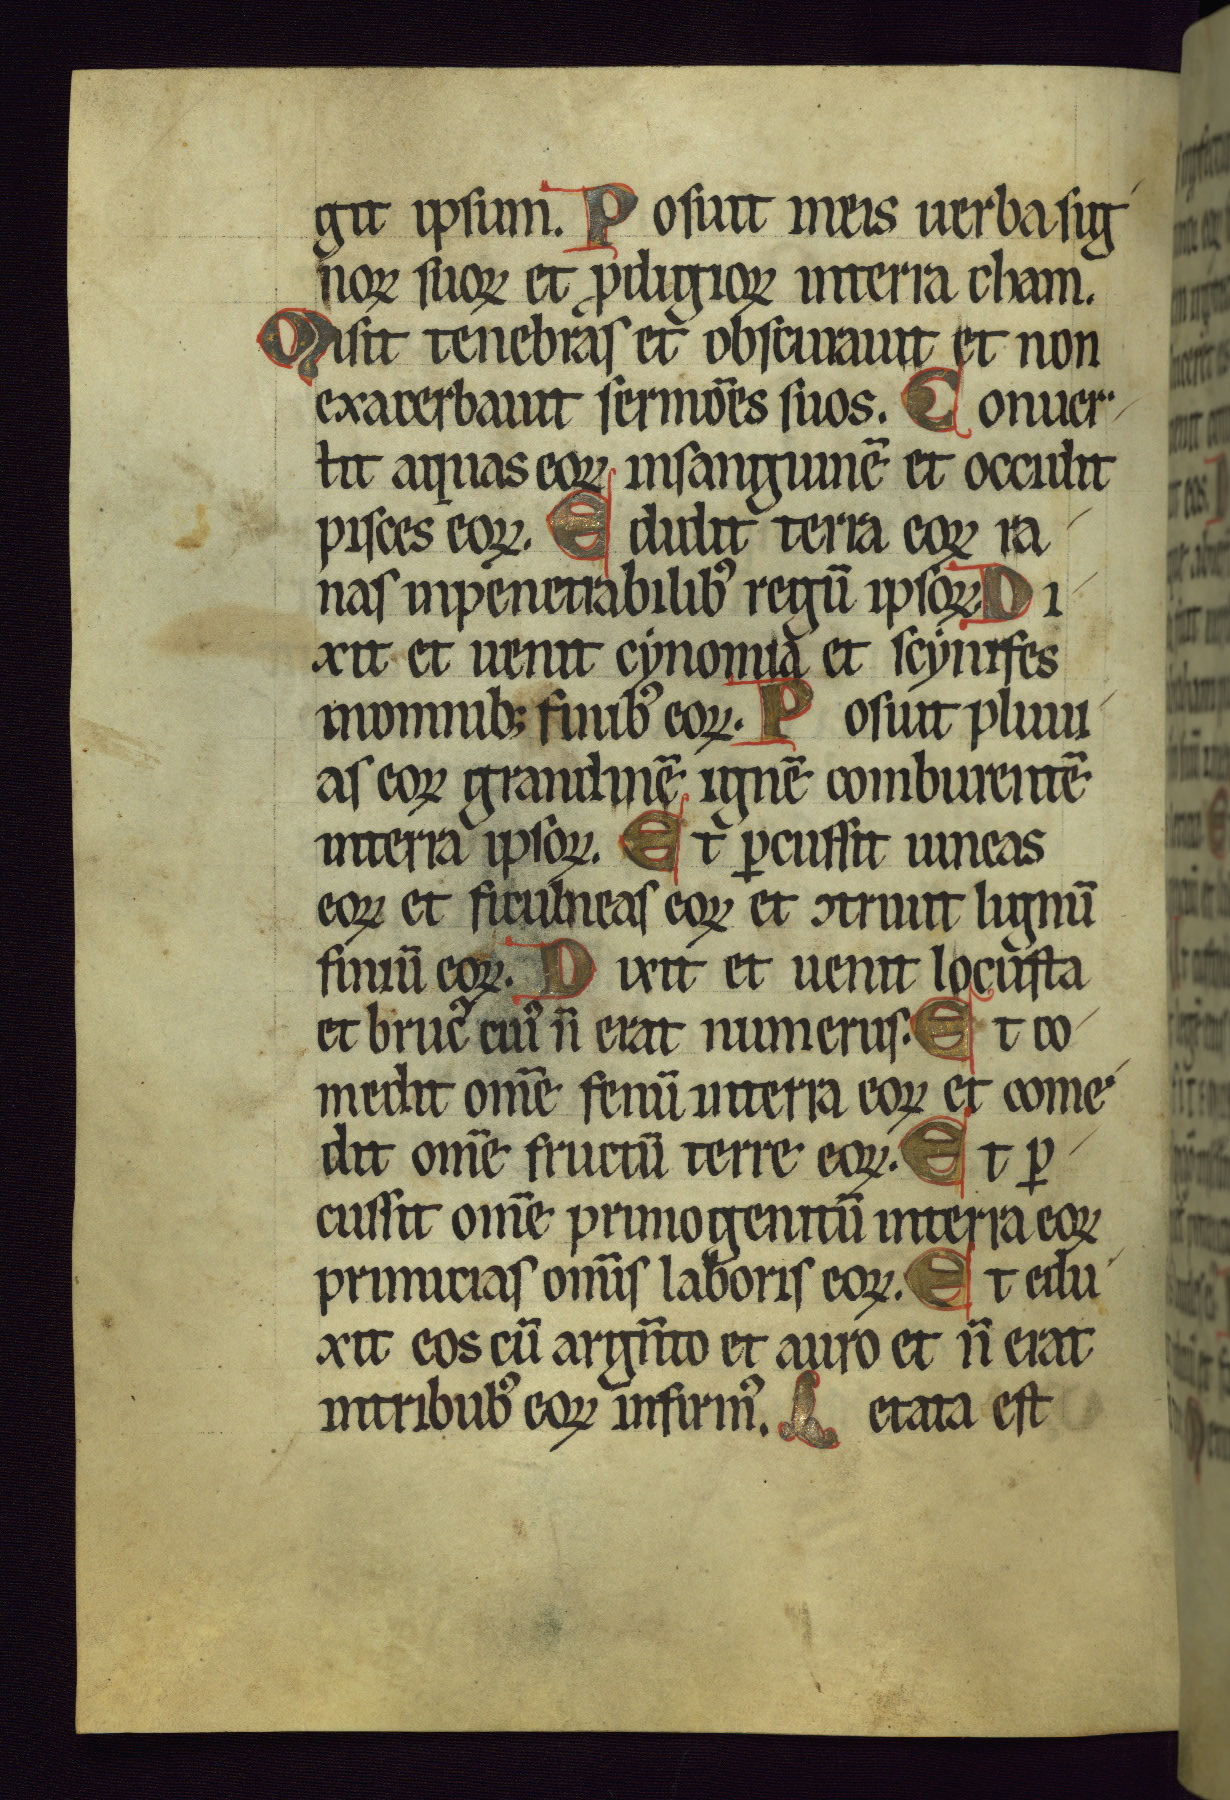 git ipsum. Posuit in eis uerba sig
noꝝ suoꝝ et ꝓdigioꝝ in terra cham.
Misit tenebras et obscurauit et non
exacerbauit sermōes suos. Conuer
tit aquas eoꝝ in sanguinē et occidit
pisces eoꝝ. Edidit terra eoꝝ ra
nas in penetrabilibꝰ regū ipsoꝝ. Di
xit et uenit cynomia et scynifes
in omnib; finibꝰ eoꝝ. Posuit pluui
as eoꝝ grandinē ignē comburentē
in terra ipsoꝝ. Et ꝑcussit uineas
eoꝝ et ficulneas eoꝝ et ꝯtriuit lignū
finiū eoꝝ. Dixit et uenit locusta
et brucꝰ cuiꝰ n̄ erat numerus. Et co
medit om̄e fenū in terra eoꝝ et come
dit om̄e fructū terre eoꝝ. Et ꝑ
cussit om̄e primogenitū in terra eoꝝ
primicias om̄is laboris eoꝝ. Et edu
xit eos cū argn̄to et auro et n̄ erat
in tribubꝰ eoꝝ infirmꝰ. Letata est